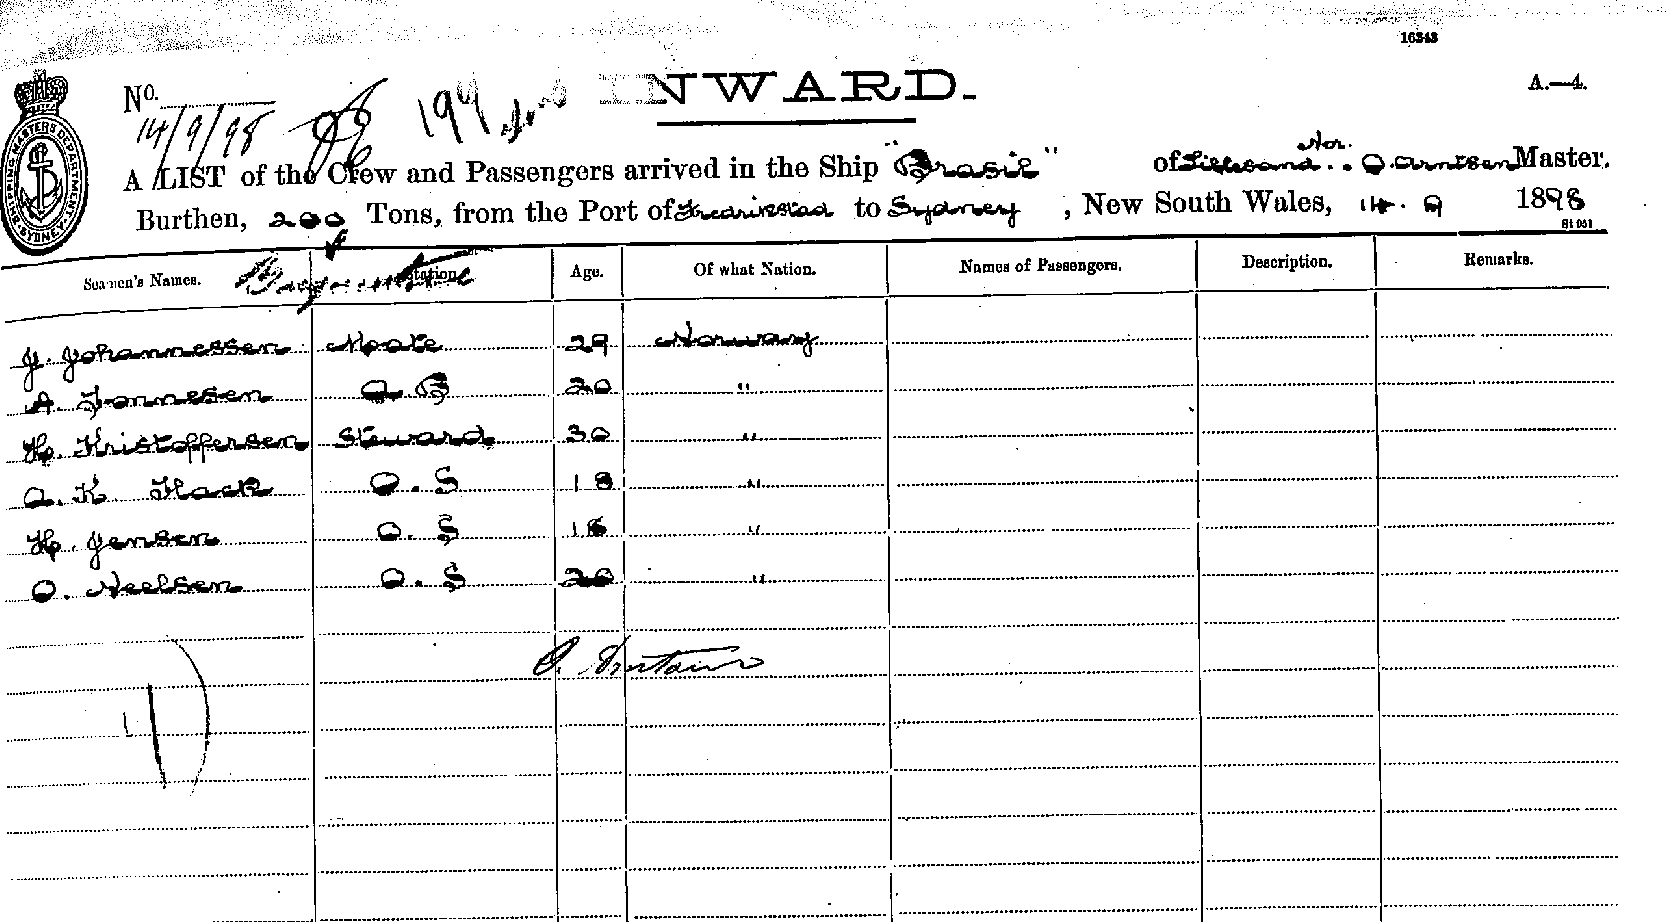 16343
INWARD.
A.—4.
No.
14/9/98
SHIPPING MASTER'S DEPARTMENT SYDNEY
Nor.
A LIST of the Crew and Passengers arrived in the Ship "Brasil" of Lillesand.. O. Arntsen Master.
Burthen, 200 Tons, from the Port of Fredrikstad to Sydney, New South Wales, 14. 9 1898
Seamen's Names. Station. Age. Of what Nation. Names of Passengers. Description. Remarks.
J. Johannessen Mate 29 Norway
A. Tonnesen A.B 20 "
H. Kristoffersen Steward 30 "
A. K. Flack O.S 18 "
H. Jensen O.S 18 "
O. Neelsen O.S 20 "